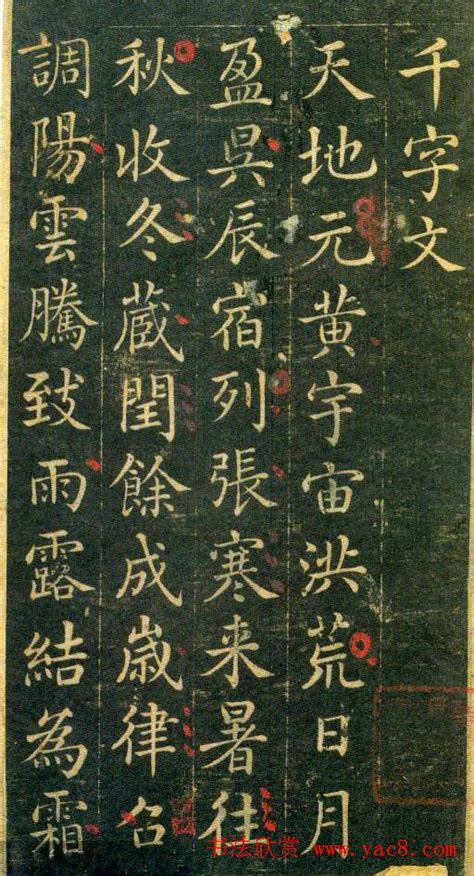 千字文
天地元黄宇宙洪荒日月
盈昃辰宿列張寒来暑往
秋收冬蔵閏餘成歲律召
調陽雲騰致雨露結為霜
书法欣赏 www.yac8.com